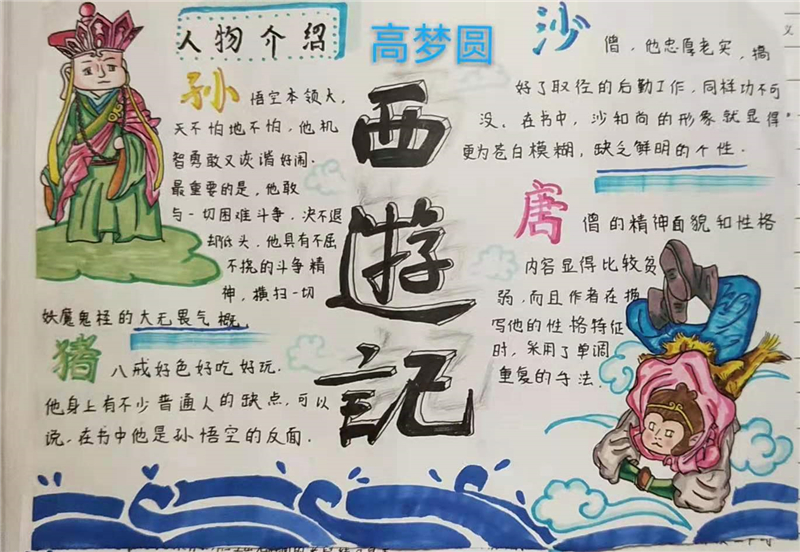 人物介绍
高梦圆
西遊記
孙悟空本领大，
天不怕地不怕，他机
智勇敢又诙谐好闹．
最重要的是，他敢
与一切困难斗争，决不退
却低头，他具有不屈
不挠的斗争精
神，横扫一切
妖魔鬼怪的大无畏气概．
猪八戒好色好吃好玩．
他身上有不少普通人的缺点，可以
说，在书中他是孙悟空的反面．
沙僧，他忠厚老实，搞
好了取径的后勤工作，同样功不可
没．在书中，沙和尚的形象就显得
更为苍白模糊，缺乏鲜明的个性．
唐僧的精神面貌和性格
内容显得比较贫
弱，而且作者在描
写他的性格特征
时，采用了单调
重复的手法．
义